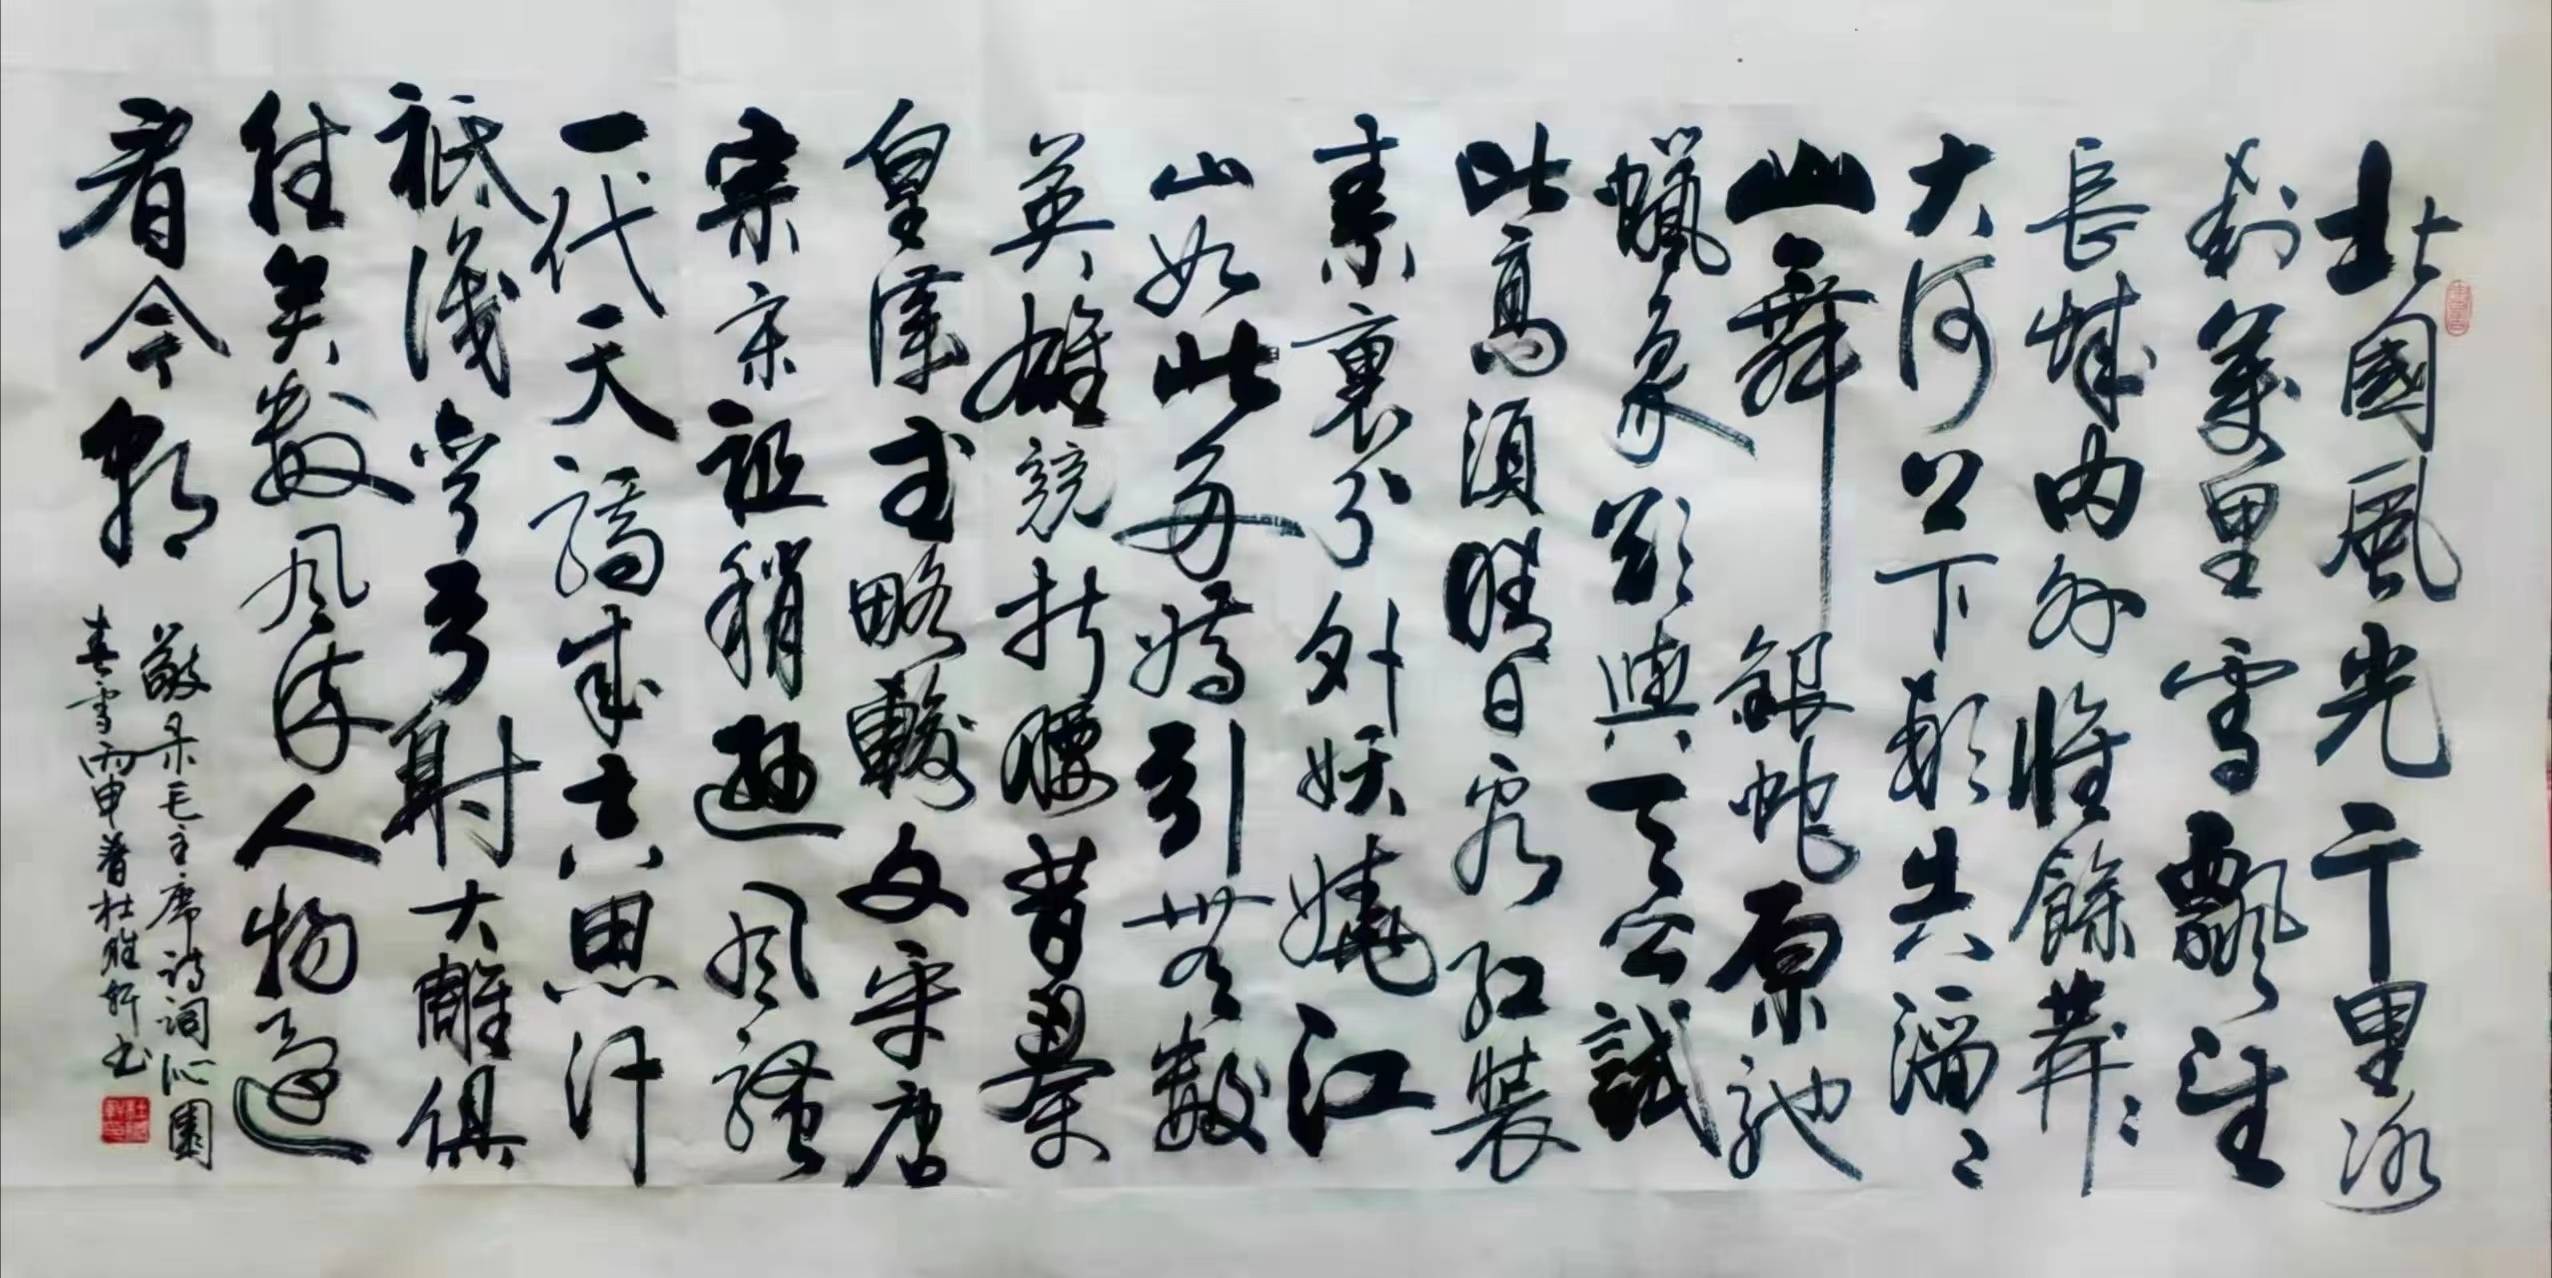 北國風光千里冰
封萬里雪飄望
長城內外惟餘莽〻
大河上下頓失滔〻
山舞銀蛇原馳
蠟象欲與天公試
比高須晴日看紅裝
素裹分外妖嬈江
山如此多嬌引無數
英雄競折腰昔秦
皇漢武略輸文采唐
宗宋祖稍遜風騷
一代天驕成吉思汗
祇識彎弓射大雕俱
往矣數風流人物還
看今朝
敬录毛主席诗词沁園
春雪丙申春杜胜书